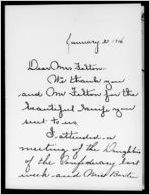 January 21 1916
Dear Mrs Felton:
We thank you
and Mr Felton for the
beautiful knife you
sent to us.
I attended a
meeting of the Daughters
of the Confederacy last
week and Miss